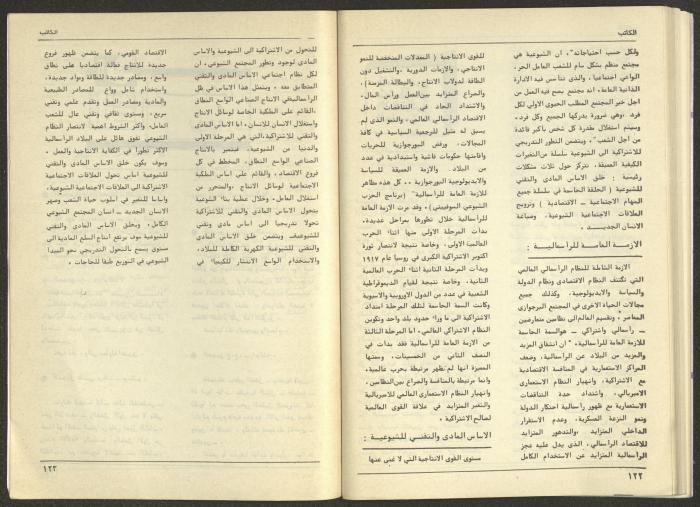 الكاتب
ولكل حسب احتياجاته". ان الشيوعية هي
مجتمع منظم بشكل سام للشعب العامل الحر،
الواعي اجتماعيا ، والذي تتأسس فيه الادارة
الذاتية العامة، انه مجتمع يصبح فيه العمل من
اجل خير المجتمع المطلب الحيوي الاولي لكل
فرد ،وهي ضرورة يدركها الجميع وكل فرد،
وسيتم استغلال مقدرة كل شخص بأكبر فائدة
من اجل الشعب"، ويتضمن التطور التدريجي
للاشتراكية الى الشيوعية سلسلة من التغيرات
الكيفية العميقة، تتركز حول ثلاث مشكلات
رئيسية : خلق الاساس المادي والتقني
للشيوعية ( الحلقة الحاسمة في سلسلة جميع
المهام الاجتماعية ـ الاقتصادية ) وترويج
العلاقات الاجتماعية الشيوعية، وصياغة
الانسان الجديد ــ .
الازمة العامة للراسمالية :
الازمة الشاملة للنظام الراسمالي العالمي
التي تكتنف النظام الاقتصادي ونظام الدولة
والسياسة والايديولوجية، وكذلك جميع
مجالات الحياة الاخرى في المجتمع البرجوازي
المعاصر " وتقسيم العالم الى نظامين متعارضين
ـ راسمالي واشتراكي ـ هو السمة الحاسمة
للازمة العامة للراسمالية، " ان انشقاق المزيد
والمزيد من البلاد عن الراسمالية، وضعف
المراكز الاستعمارية في المنافسة الاقتصادية
مع الاشتراكية، وانهيار النظام الاستعماري
الامبريالي، واشتداد حدة التناقضات
الاستعمارية مع ظهور راسمالية احتكار الدولة
ونمو النزعة العسكرية، وعدم الاستقرار
الداخلي المتزايد ،والتدهور المتزايد
للاقتصاد الراسمالي، الذي يدل عليه عجز
الراسمالية المتزايد عن الاستخدام الكامل
للقوى الانتاجية ( المعدلات المنخفضة للنمو
الانتاجي، والازمات الدورية ،والتشغيل دون
الطاقة لادوات الانتاج، والبطالة المزمنة)،
والصراع المتزايد بين العمل ورأس المال،
والاشتداد الحاد في التناقضات داخل
الاقتصاد الراسمالي العالمي، والنمو الذي لم
يسبق له مثيل للرجعية السياسية في كافة
المجالات، ورفض البورجوازية للحريات
واقامتها حكومات فاشية استبدادية في عدد
من البلاد، والازمة العميقة للسياسة
والايديولوجية البورجوازية ـ ـ كل هذه مظاهر
للازمة العامة للراسمالية" (برنامج الحزب
الشيوعي السوفييتي)، وقد مرت الازمة العامة
للراسمالية خلال تطورها بمراحل عديدة،
بدأت المرحلة الاولى منها اثناء الحرب
العالمية الاولى، وخاصة نتيجة لانتصار ثورة
اكتوبر الاشتراكية الكبرى في روسيا عام ١٩١٧
وبدأت المرحلة الثانية اثناء الحرب العالمية
الثانية، وخاصة نتيجة لقيام الديموقراطية
الشعبية في عدد من الدول الاوروبية والاسيوية
وكانت السمة الحاسمة لتلك المرحلة امتداد
الاشتراكية الى ما وراء حدود بلد واحد وتكوين
النظام الاشتراكي العالمي، اما المرحلة الثالثة
من الازمة العامة للراسمالية فقد بدأت في
النصف الثاني من الخمسينات، وسمتها
المميزة انها لم تظهر مرتبطة بحرب عالمية،
وانما مرتبطة بالمنافسة والصراع بين النظامين،
وانهيار النظام الاستعماري العالمي للامبريالية
والتغير المتزايد في علاقة القوى العالمية
لصالح الاشتراكية .
الاساس المادي والتقني للشيوعية :
مستوى القوى الانتاجية التي لا غنى عنها
١٢٢
الكاتب
للتحول من الاشتراكية الى الشيوعية والاساس
المادي لوجود وتطور المجتمع الشيوعي، ان
لكل نظام اجتماعي الاساس المادي والتقني
المتطابق معه ، ويتمثل هذا الاساس في ظل
الراسمالية في الانتاج الصناعي الواسع النطاق
،القائم على الملكية الخاصة لوسائل الانتاج
واستغلال الانسان للانسان، اما الاساس المادي
والتقني للاشتراكية، التي هي المرحلة الاولى
والدنيا من الشيوعية، فيتميز بالانتاج
الصناعي الواسع النطاق، المخطط في كل
فروع الاقتصاد ، والقائم على اساس الملكية
الاجتماعية لوسائل الانتاج ،والمتحرر من
استغلال العامل، وخلال عملية بناء الشيوعية
يتحول الاساس المادي والتقني للاشتراكية
تحولا تدريجيا الى اساس مادي وتقني
للشيوعية، ويتضمن خلق الاساس المادي
والتقني للشيوعية الكهربة الكاملة للبلاد،
والاستخدام الواسع الانتشار للكيمياء في
الاقتصاد القومي، كما يتضمن ظهور فروع
جديدة للانتاج فعالة اقتصاديا على نطاق
واسع، ومصادر جديدة للطاقة ومواد جديدة،
واستخدام شامل وواع للمصادر الطبيعية
والمادية ومصادر العمل وتقدم علمي وتقني
سريع، ومستوى ثقافي وتقني عال للشعب
العامل، واكثر الشروط اهمية لانتصار النظام
الشيوعي تفوق هائل على البلاد الراسمالية
الاكثر تطورا في الكفاية الانتاجية والعمل ،
وسوف يكون خلق الاساس المادي والتقني
للشيوعية اساس تحول العلاقات الاجتماعية
الاشتراكية الى العلاقات الاجتماعية الشيوعية،
واساسا للتغير في اسلوب حياة الشعب وصهر
الانسان الجديد ـ انسان المجتمع الشيوعي
الكامل، وبخلق الاساس المادي والتقني
للشيوعية سوف يرتفع انتاج السلع المادية الى
مستوى يسمح بالتحول التدريجي نحو المبدأ
الشيوعي في التوزيع طبقا للحاجات .
١٢٣